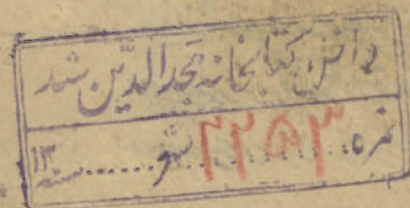 داخل کتابخانه مجدالدّین شد
نمره ۲۲۵۳ شهر سنه ۱۳